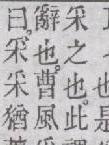 也是
采之也此
辭也。曹風
曰,采采猶